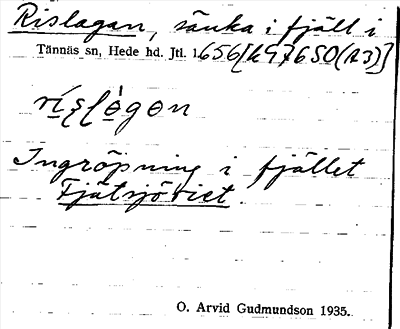 Rislagan, sänka i fjäll i
Tännäs sn, Hede hd. Jtl. 1656[k976SO(A3)]
ríslògon
Ingröpning i fjället
Fjätsjövlet.
O. Arvid Gudmundson 1935.